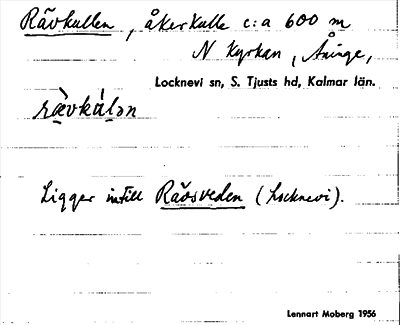 Rävkullen, åkerkulle c:a 600 m
N Kyrkan, Åninge,
Locknevi sn, S. Tjusts hd, Kalmar län.
rævkálən
Ligger intill Rävsveden (Locknevi).
Lennart Moberg 1956